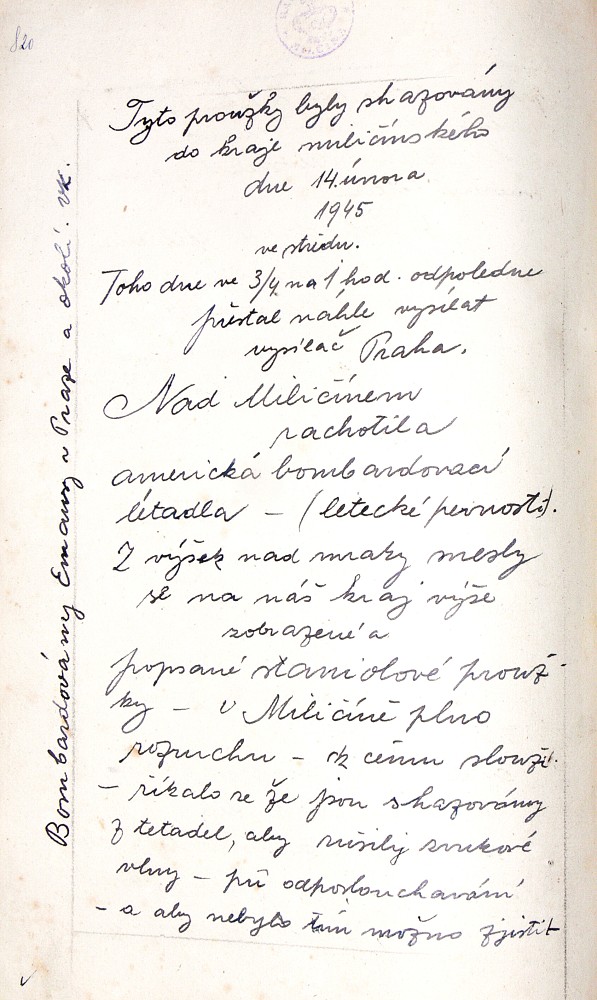 820
Tyto proužky byly shazovány
do kraje miličínského
dne 14. února
1945
ve středu.
Toho dne ve 3/4 na 1 hod. odpoledne
přestal náhle vysílat
vysílač Praha.
Nad Miličínem
rachotila
americká bombardovací
létadla – (letecké pevnosti).
Z výšek nad mraky snesly
se na náš kraj výše
zobrazené a
popsané staniolové prouž-
ky – v Miličíně plno
rozruchu – k čemu slouží.
– říkalo se že jsou shazovány
z letadel, aby rušily zvukové
vlny – při odposlouchávání
– a aby nebylo tím možno zjistit
Bombardovány Emauzy v Praze a okolí.